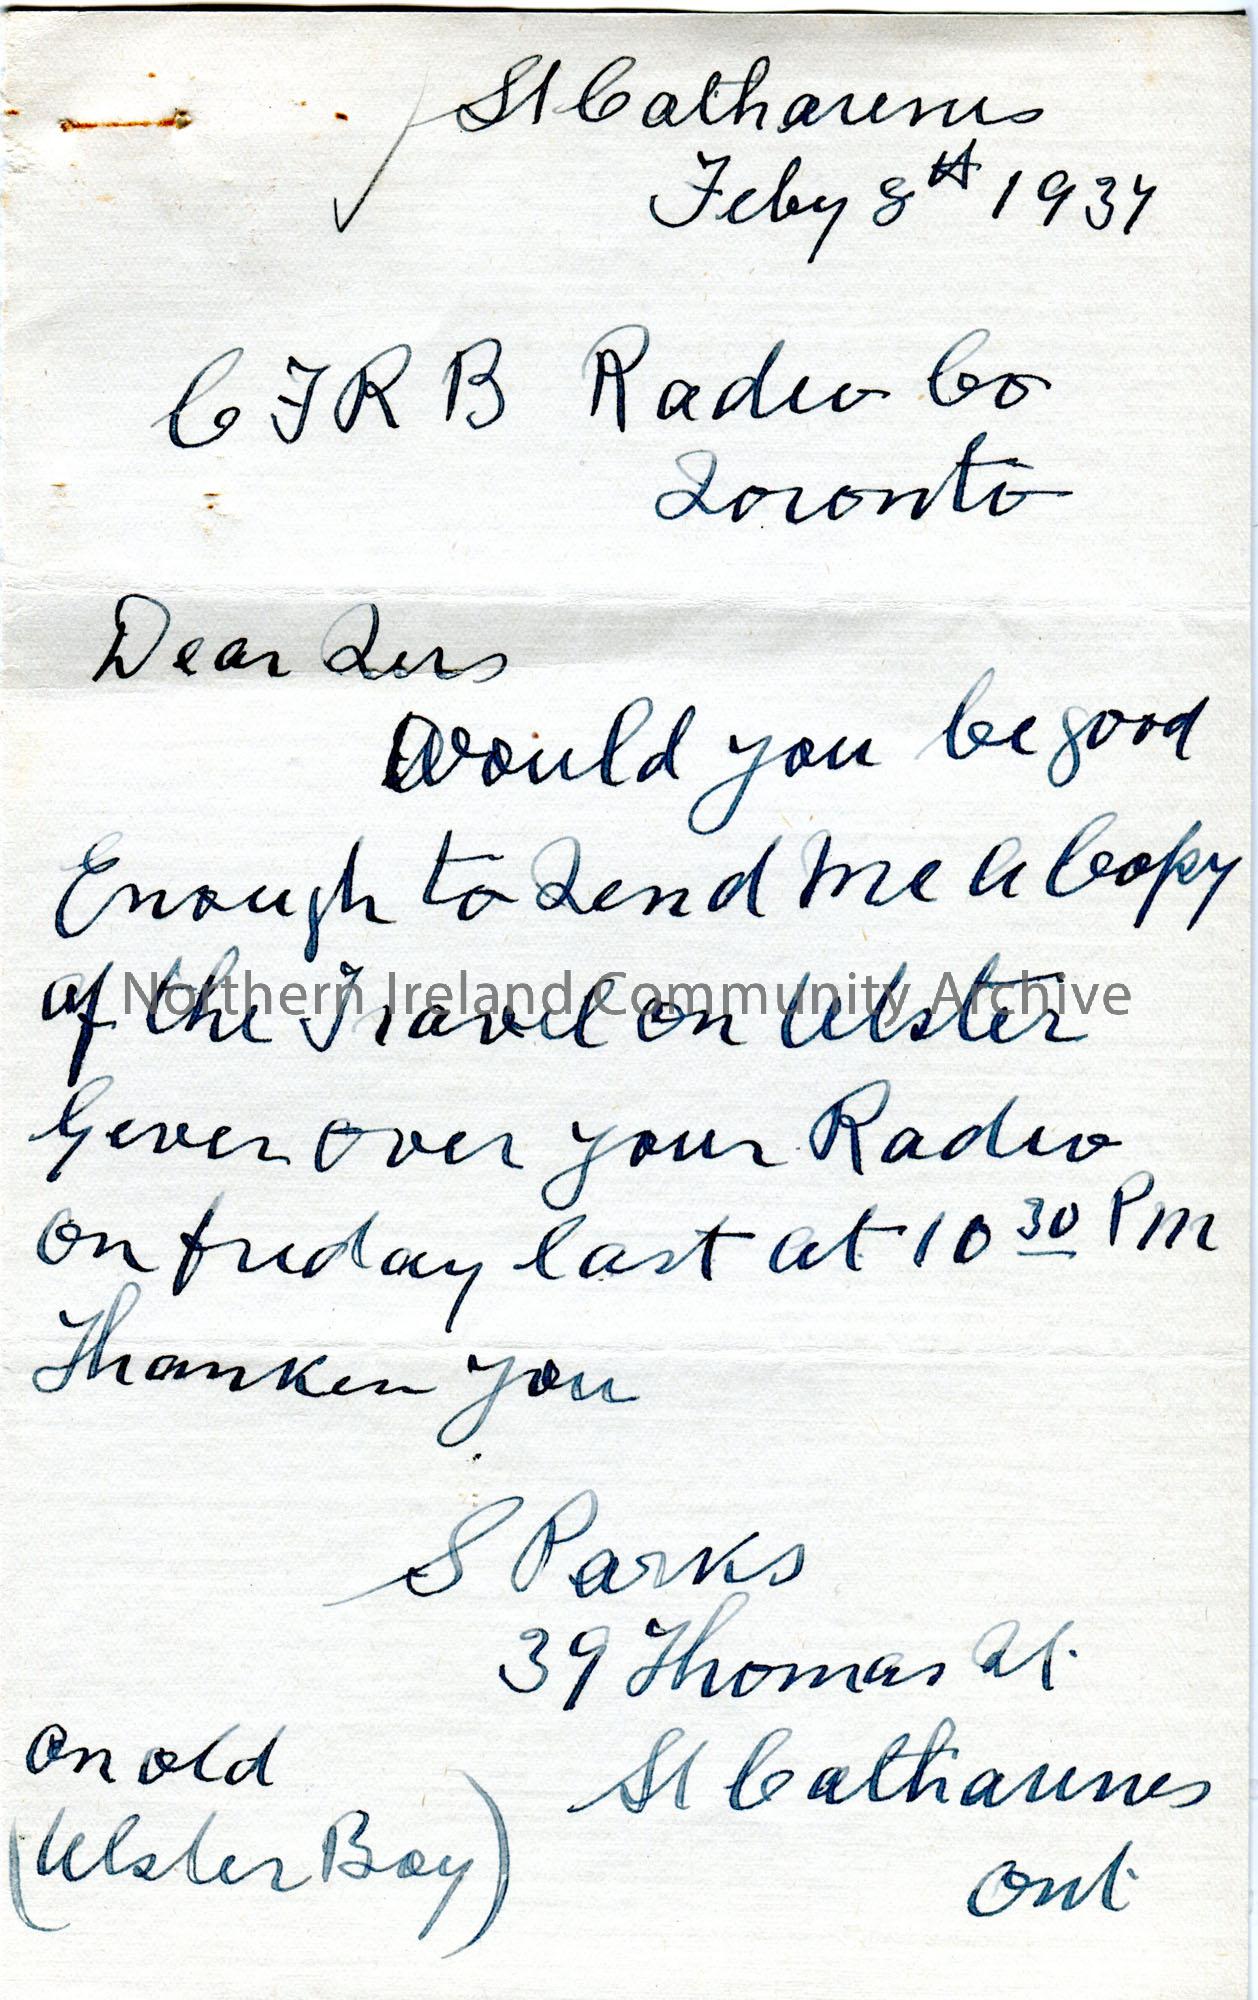 St Catharines
Feby 8th 1934
C F R B Radio Co
Toronto
Dear Sirs
Would you be good
Enough to Send Me A Copy
of the Travel on Ulster
Given over your Radio
on friday last at 10 30 PM
Thanken you
S Parks
39 Thomas St.
St Catharines
Ont.
an old
(Ulster Boy)
Northern Ireland Community Archive